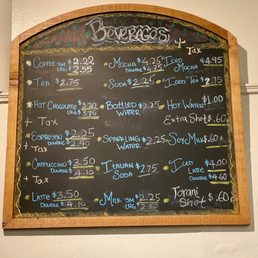 Beverages
+ Tax
Coffee SM $2.22
LRG $2.55
Mocha $4.25
Double $4.75
Iced Mocha $4.95
Tea $2.75
Soda $2.25
Iced Tea $2.75
Hot Chocolate
+ Tax
Bottled Water $2.25
Hot Water $1.00
Extra Shot $.60
Espresso $2.25
Double $2.90
+ Tax
Sparkling Water $2.25
Soy Milk $.60
Cappuccino $3.50
Double $4.10
+ Tax
Italian Soda $2.75
Iced Latte $4.00
Double $4.60
Latte $3.50
Double $4.10
Milk SM $2.25
LRG $2.50
Torani Shot $.60